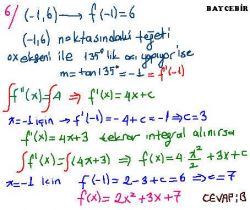 BAYCEBİR
6/ (-1,6) → f(-1)=6
(-1,6) noktasındaki teğeti
ox ekseni ile 135° lik açı yapıyor ise
m=tan135°=-1=f'(-1)
∫f''(x)=∫4 ⇒ f'(x)=4x+c
x=-1 için → f'(-1)=-4+c=-1 ⇒ c=3
f'(x)=4x+3 tekrar integral alınırsa
∫f'(x)=∫(4x+3) ⇒ f(x)=4·x²/2+3x+C
x=-1 için f(-1)=2-3+c=6 ⇒ c=7
f(x)=2x²+3x+7 CEVAP:B